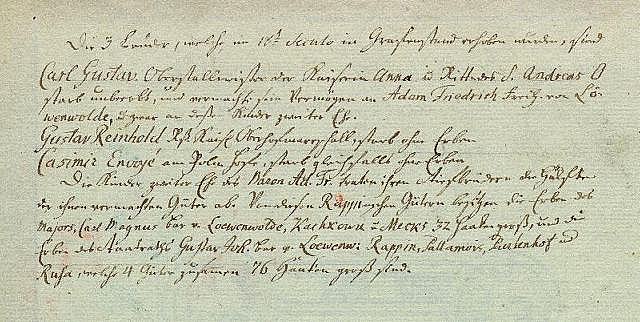 Die 3 Brüder, welche im 18t Seculo in Grafenstand erhoben wurden, sind
Carl Gustav. Oberstallmeister der Kaiserin Anna u Ritter des S. Andreas O
starb unbeerbt, und vermacht sein Vermögen an Adam Friedrich Freih. von Lö-
wenwolde, u zwar an dessen Kinder zweiter Ehe.
Gustav Reinhold Russ. Kaiserl. Oberhofmarschall, starb ohne Erben
Casimir Envoyé am Poln. Hofe, starb gleichfalls ohne Erben
Die Kinder zweiter Ehe des Baron Ad. Fr. traten ihren Stiefbrüdern die Hälfte
der ihnen vermachten Güter ab. Von diesen Rappinschen Gütern besitzen die Erben des
Majors, Carl Magnus bar v. Loewenwolde, u Mecks 32 Haaken groß, und die
Erben des Staatraths Gustav Joh. bar v. Loewenw. Rappin, und
welche 4 Güter zusamen 76 Haaken groß sind.